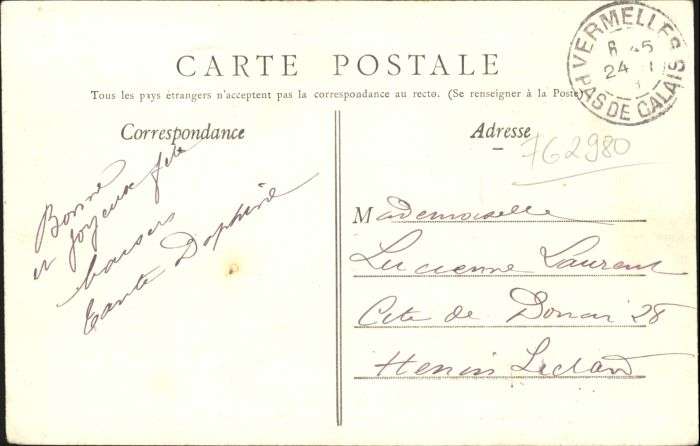 CARTE POSTALE
Tous les pays étrangers n'acceptent pas la correspondance au recto. (Se renseigner à la Poste)
VERMELLES
24
PAS DE CALAIS
Correspondance
Bonne
et joyeuse fête
baisers
Tante Daphine
Adresse
762980
Mademoiselle
Lucienne Laurent
Cite de Douai 28
Henin Lietard